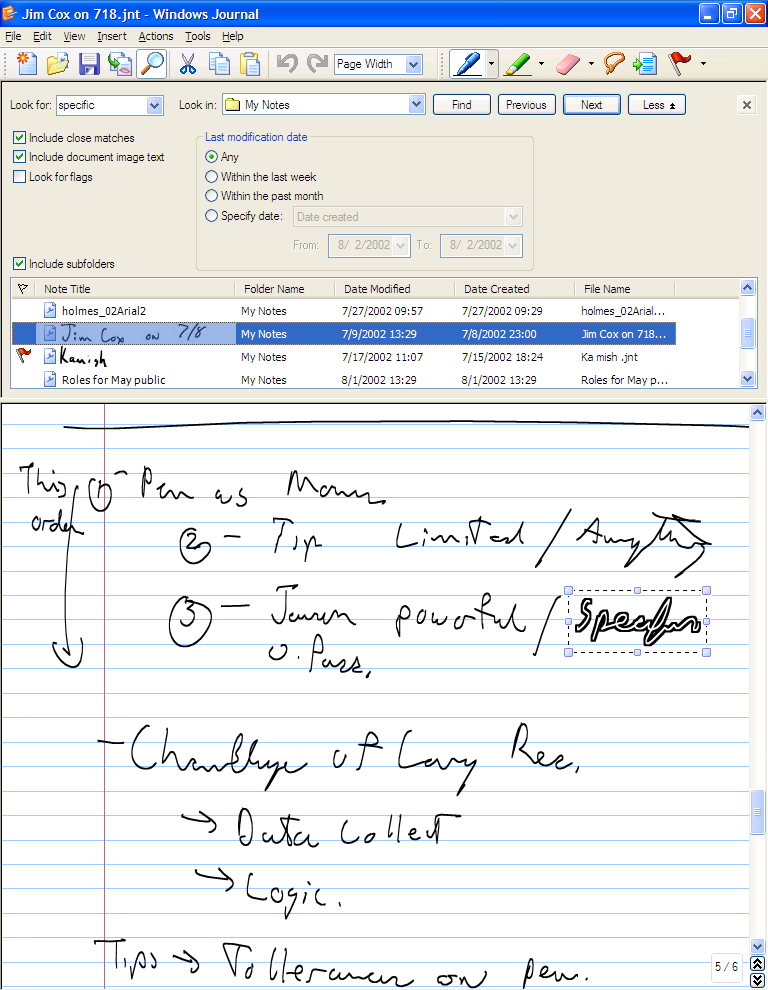 Jim Cox on 718.jnt - Windows Journal
File Edit View Insert Actions Tools Help
Page Width
Look for: specific Look in: My Notes Find Previous Next Less
Include close matches
Include document image text
Look for flags
Include subfolders
Last modification date
Any
Within the last week
Within the past month
Specify date: Date created
From: 8/ 2/2002 To: 8/ 2/2002
Note Title Folder Name Date Modified Date Created File Name
holmes_02Arial2 My Notes 7/27/2002 09:57 7/27/2002 09:29 holmes_02Arial...
Jim Cox on 7/8 My Notes 7/9/2002 13:29 7/8/2002 23:00 Jim Cox on 718...
Kamish My Notes 7/17/2002 11:07 7/15/2002 18:24 Ka mish .jnt
Roles for May public My Notes 8/1/2002 13:29 8/1/2002 13:29 Roles for May p...
This order
① - Pen as
② - Tip Limited / Anything
③ - powerful /
- of Rec.
→ Data Collect
→ Logic.
Tips → on pen.
5 / 6